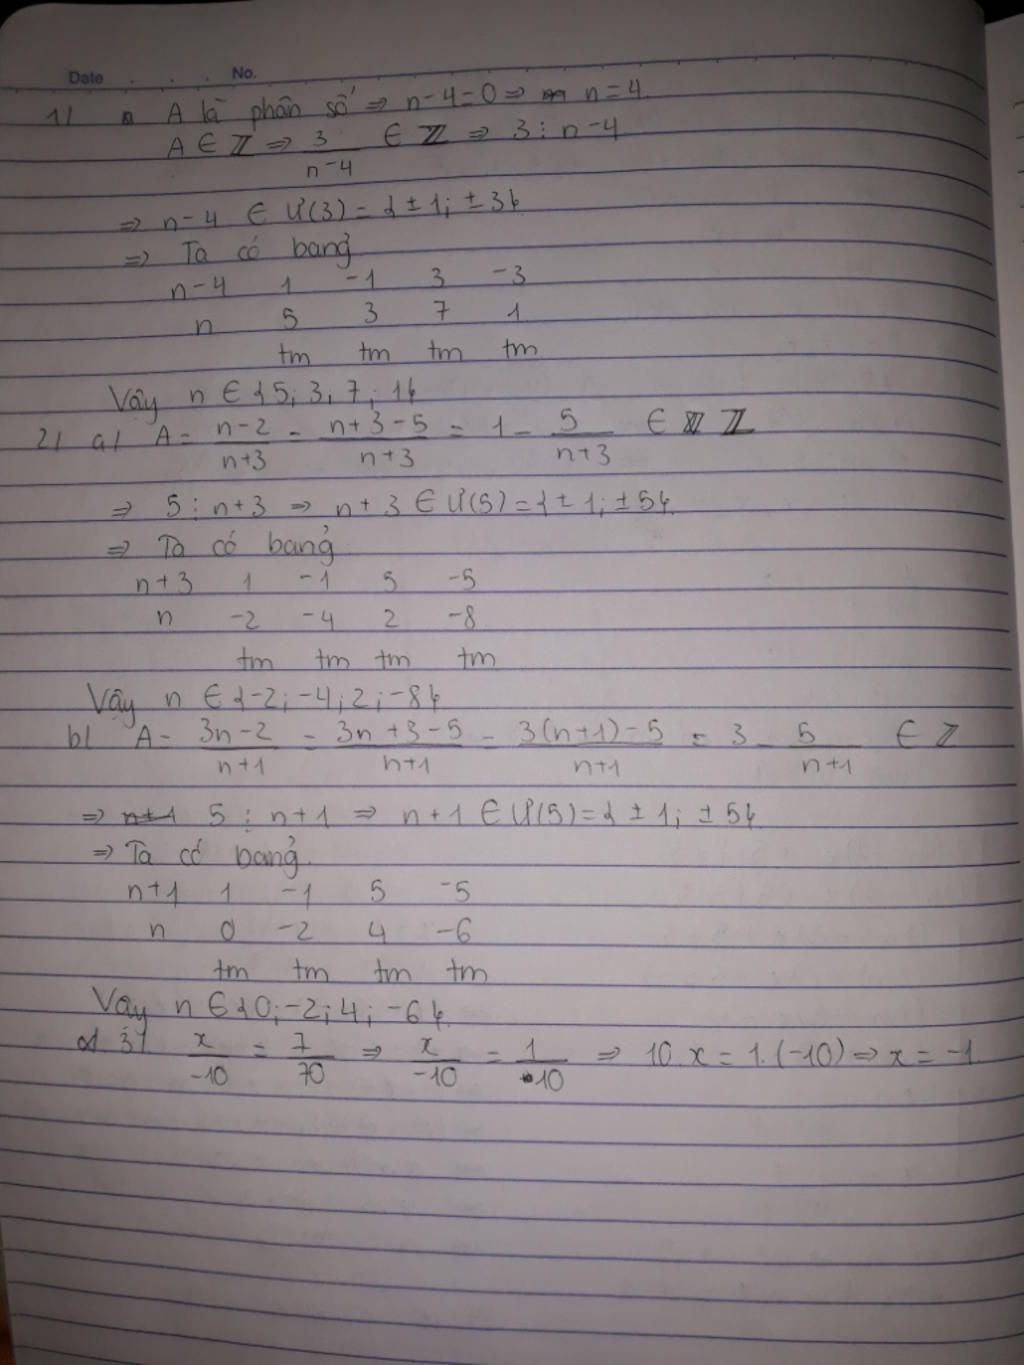 Date . . . No.
1/ A là phân số => n-4=0 => n=4.
A ∈ Z => 3/(n-4) ∈ Z => 3 ⋮ n-4
=> n-4 ∈ Ư(3) = {±1; ±3}
=> Ta có bảng
n-4 1 -1 3 -3
n 5 3 7 1
tm tm tm tm
Vậy n ∈ {5; 3; 7; 1}
2/ a/ A = (n-2)/(n+3) = (n+3-5)/(n+3) = 1 - 5/(n+3) ∈ Z
=> 5 ⋮ n+3 => n+3 ∈ Ư(5) = {±1; ±5}.
=> Ta có bảng
n+3 1 -1 5 -5
n -2 -4 2 -8
tm tm tm tm
Vậy n ∈ {-2; -4; 2; -8}
b/ A = (3n-2)/(n+1) = (3n+3-5)/(n+1) = (3(n+1)-5)/(n+1) = 3 - 5/(n+1) ∈ Z
=> 5 ⋮ n+1 => n+1 ∈ Ư(5) = {±1; ±5}
=> Ta có bảng.
n+1 1 -1 5 -5
n 0 -2 4 -6
tm tm tm tm
Vậy n ∈ {0; -2; 4; -6}.
3/ x/(-10) = 7/70 => x/(-10) = 1/10 => 10.x = 1.(-10) => x = -1